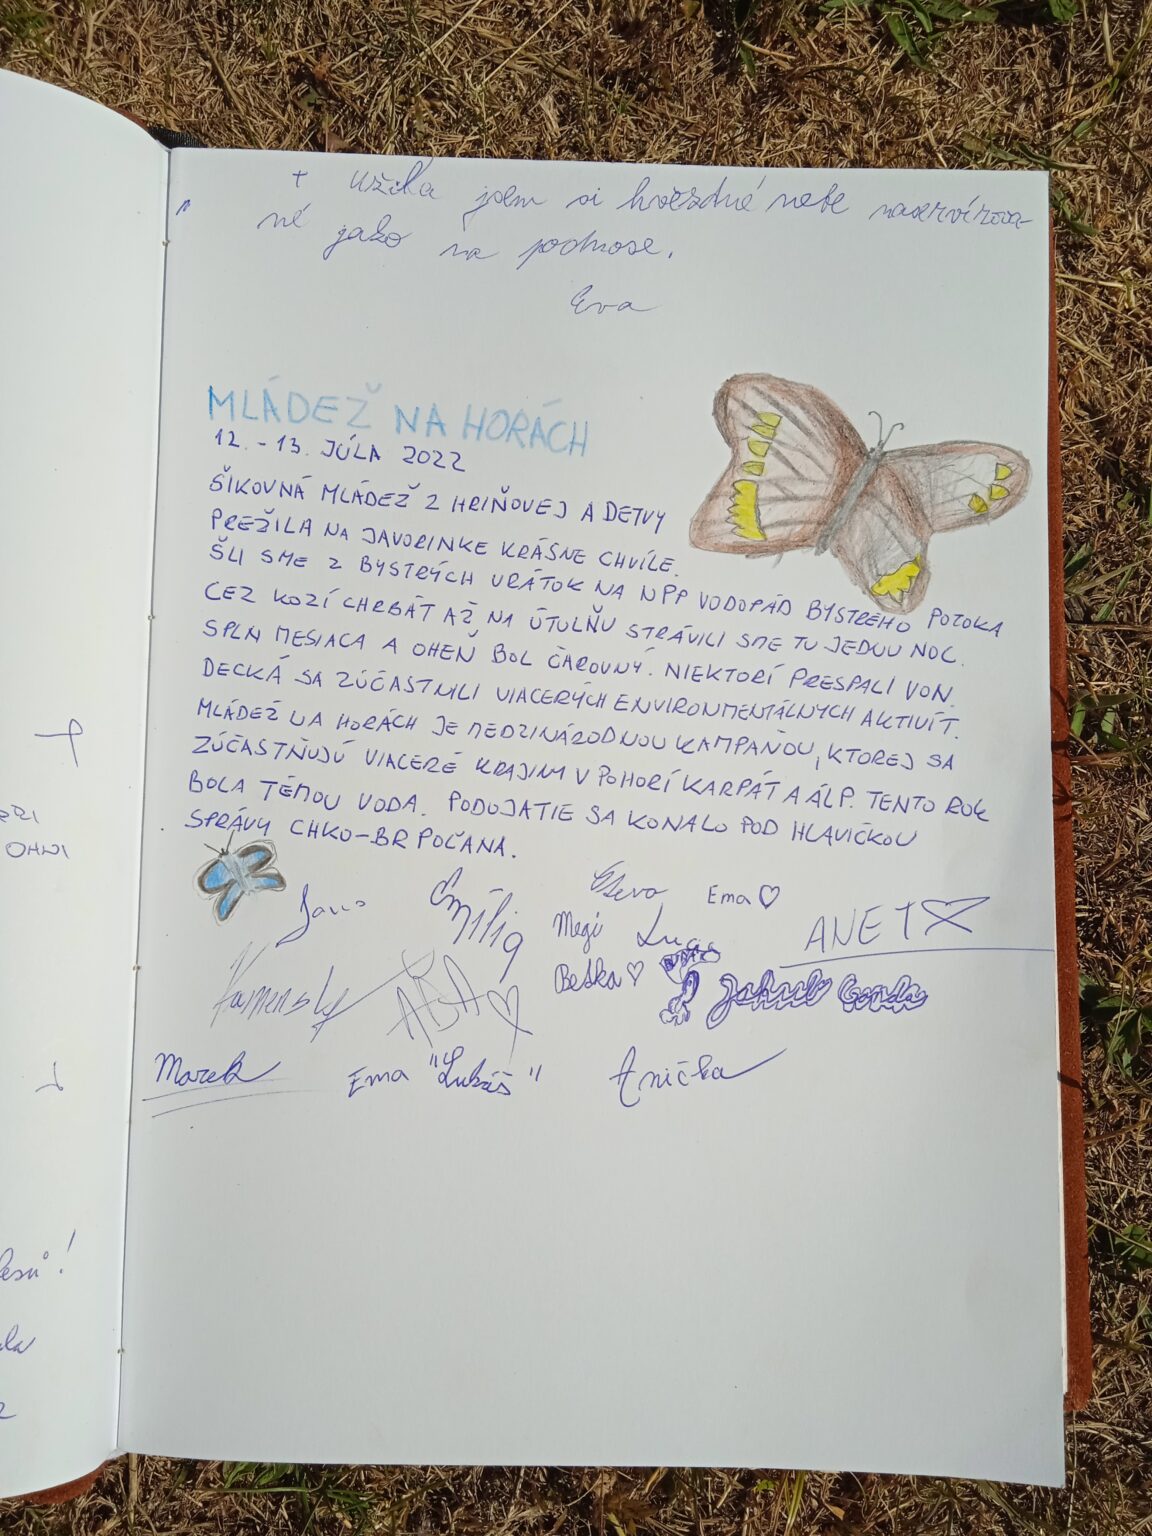 + užila jsem si hvězdné nebe naservírova-
né jako na podnose.
Eva
MLÁDEŽ NA HORÁCH
12. - 13. JÚLA 2022
ŠIKOVNÁ MLÁDEŽ Z HRIŇOVEJ A DETVY
PREŽILA NA JAVORINKE KRÁSNE CHVÍLE.
ŠLI SME Z BYSTRÝCH VRÁTOK NA NPP VODOPÁD BYSTRÉHO POTOKA
CEZ KOZÍ CHRBÁT AŽ NA ÚTULŇU STRÁVILI SME TU JEDNU NOC.
SPLN MESIACA A OHEŇ BOL ČAROVNÝ. NIEKTORÍ PRESPALI VON.
DECKÁ SA ZÚČASTNILI VIACERÝCH ENVIRONMENTÁLNYCH AKTIVÍT.
MLÁDEŽ NA HORÁCH JE MEDZINÁRODNOU KAMPAŇOU, KTOREJ SA
ZÚČASTŇUJÚ VIACERÉ KRAJINY V POHORÍ KARPÁT A ÁLP. TENTO ROK
BOLA TÉMOU VODA. PODUJATIE SA KONALO POD HLAVIČKOU
SPRÁVY CHKO-BR POĽANA.
Jano Emília Ema ♡
Megi Lucas ANET
Kamensky Beťka ♡ Jakub Gonda
Marek Ema "Lukáš" Anička
OHNI